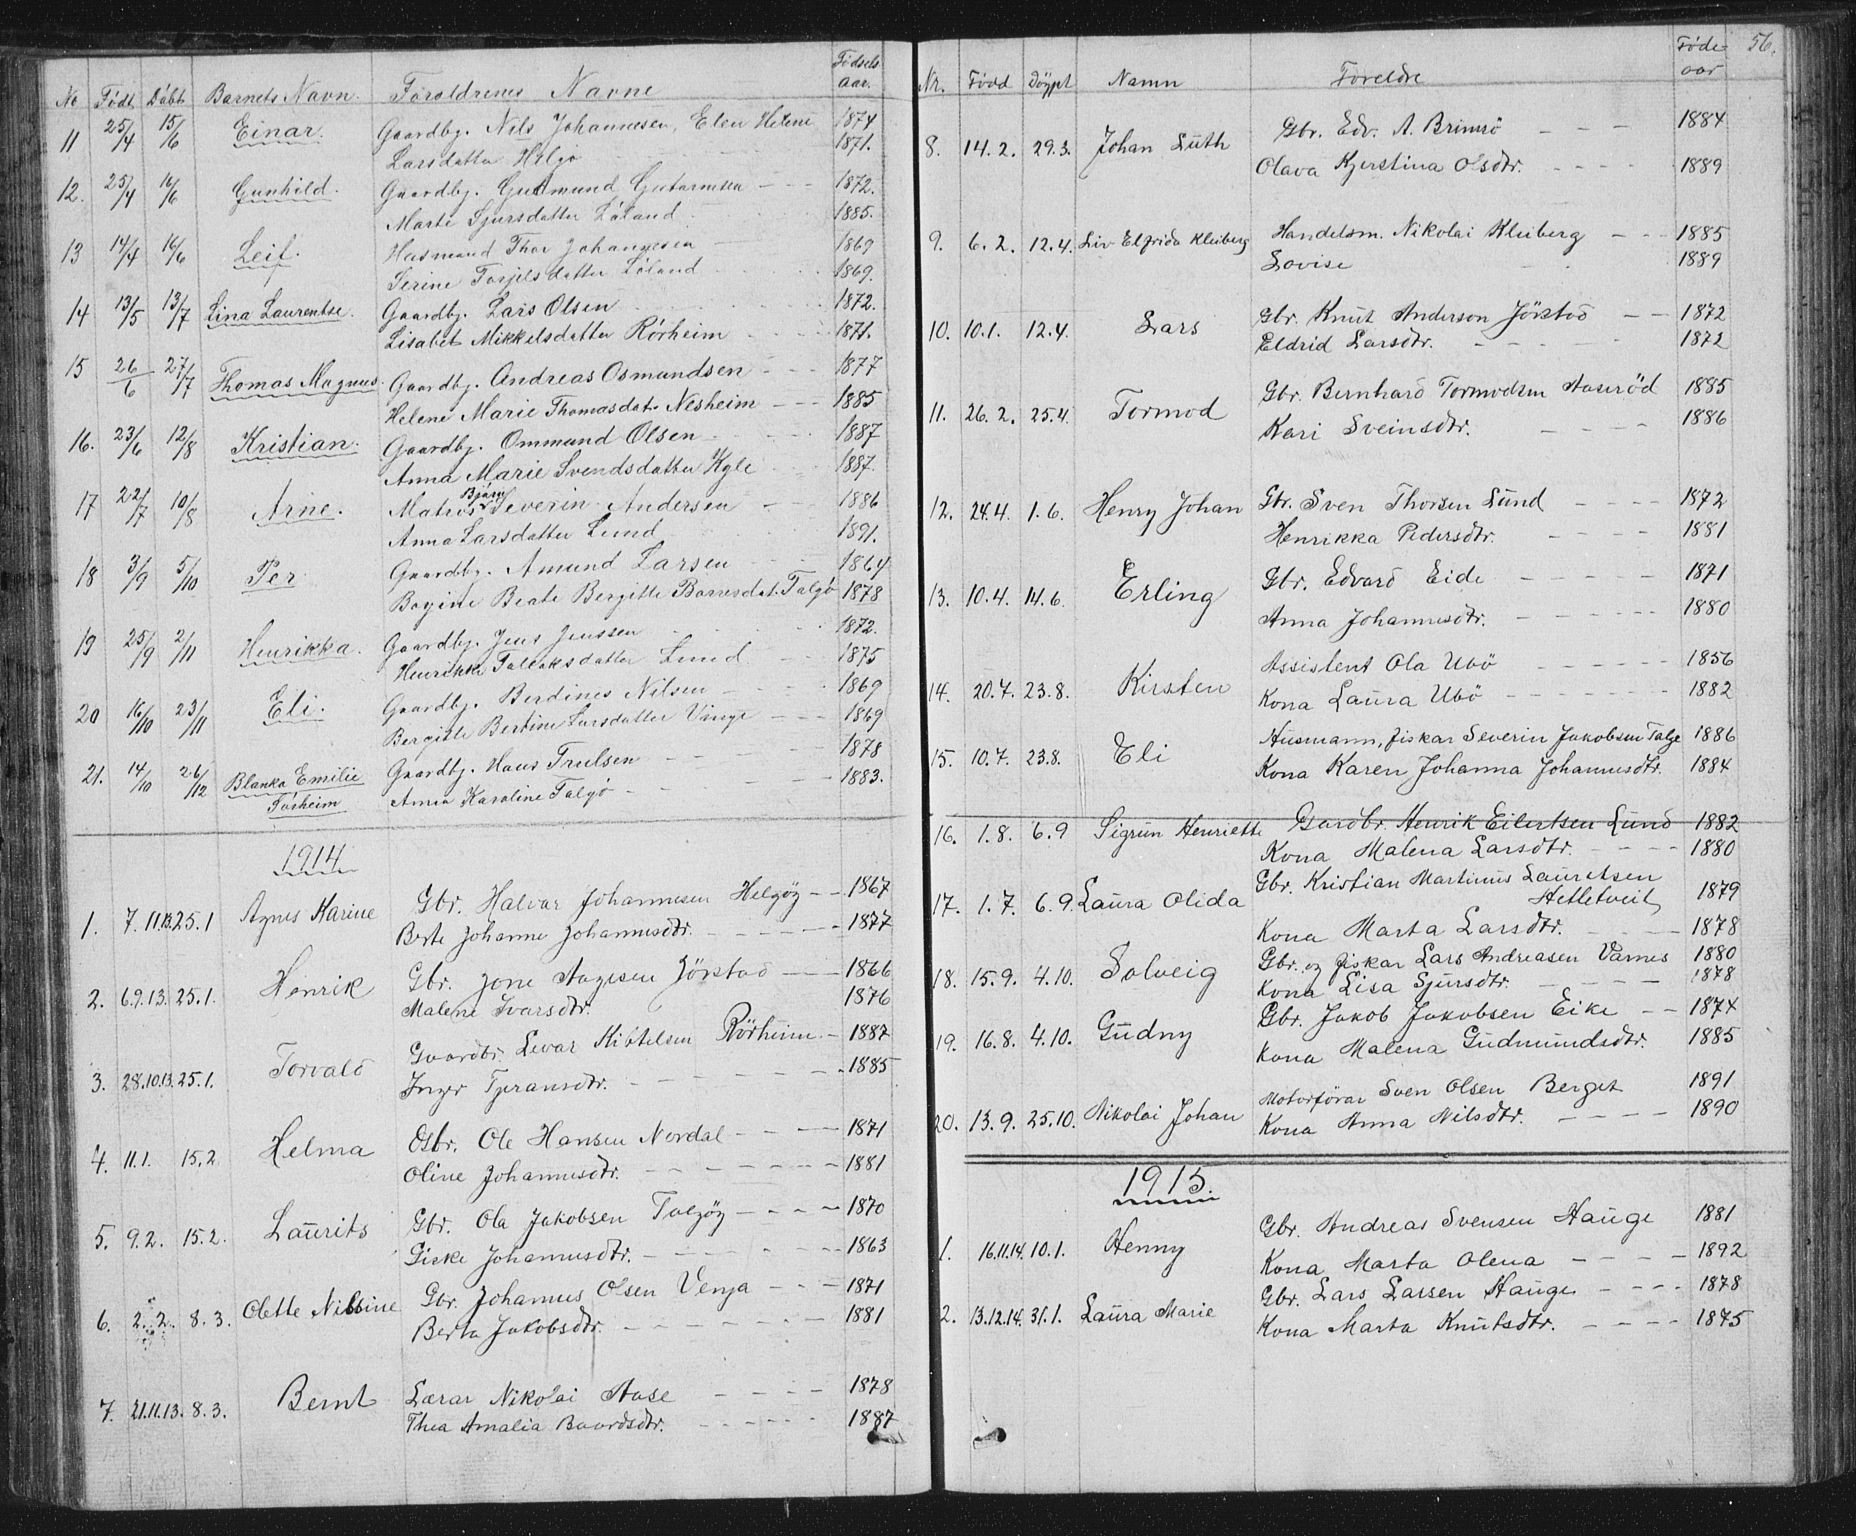 No Født Døbt Barnets Navn. Forældrenes Navne Fødsels aar.
11 25/4 15/6 Einar. Gaardbg. Nils Johannesen, Elen Helene 1874
Larsdatter Helgø 1871.
12. 25/4 16/6 Gunhild. Gaardbg. Gudmund Gutormsen 1872.
Marte Sjursdatter Løland 1885.
13 14/4 16/6 Leif. Husmand Thor Johannesen 1869
Serine Torjelsdatter Løland 1869.
14 13/5 13/7 Lina Laurentse. Gaardbg. Lars Olsen 1872.
Lisabet Mikkelsdatter Rørheim 1871.
15 26/6 27/7 Thomas Magnus. Gaardbg. Andreas Osmundsen 1877
Helene Marie Thomasdat. Nesheim 1885
16. 23/6 12/8 Kristian. Gaardbg. Ommund Olsen 1887
Anna Marie Svendsdatter Kyle 1887.
17 22/7 10/8 Arne. Matros Bjørn Severin Andersen 1886
Anna Larsdatter Lund 1891.
18 3/9 5/10 Per Gaardbg. Amund Larsen 1864
Beate Bergitte Talgø 1878
19 25/9 2/11 Henrikka. Gaardbg. Jens Jenssen 1872.
Henrikke Tallaksdatter Lund 1875
20 16/10 23/11 Eli. Gaardbg. Berdines Nilsen 1869
Bergitte Bertine Larsdatter Vinje 1869
21. 14/10 26/12 Blanka Emilie Gaardbg. Hans Trulsen 1878
Førheim Anna Karoline Talgø 1883.
1914
1. 7.11.13. 25.1 Agnes Karine Gbr. Halvar Johannesen Helgøy 1867
Berte Johanne Johannesdtr. 1877
2. 6.9.13. 25.1. Henrik Gbr. Jone Aagesen Jörstad 1866
Malene Ivarsdtr. 1876
3. 28.10.13. 25.1. Torvald Gaardbr. Levar Kittelsen Rörheim 1887
Inger Tjeransdtr. 1885
4. 11.1. 15.2 Helma Gbr. Ole Hansen Nordal 1871
Oline Johannesdtr. 1881
5. 9.2. 15.2. Laurits Gbr. Ola Jakobsen Talgøy 1870
Giske Johannesdtr. 1863
6. 2.2. 8.3. Olette Nilsine Gbr. Johannes Olsen Venja 1871
Berta Jakobsdtr. 1881
7. 21.11.13. 8.3. Bernt Lærar Nikolai Aase 1878
Thea Amalia Baardsdtr. 1887
56.
Nr. Född Döypt Namn Foreldre Föde aar
8. 14.2. 29.3. Johan Luth Gbr. Edv. A. Brimsö 1884
Olava Kjerstina Olsdtr. 1889
9. 6.2. 12.4. Liv Elfrida Kleiberg Handelsm. Nikolai Kleiberg 1885
Lovise 1889
10. 10.1. 12.4. Lars Gbr. Knut Anderson Jörstad 1872
Eldrid Larsdtr. 1872
11. 26.2. 25.4. Tormod Gbr. Bernhard Tormodsen Aaseröd 1885
Kari Sveinsdtr. 1886
12. 24.4. 1.6. Henry Johan Gbr. Sven Thorsen Lund 1872
Henrikka Pedersdtr. 1881
13. 10.4. 14.6. Erling Gbr. Edvard Eide 1871
Anna Johannesdtr. 1880
14. 20.7. 23.8. Kirsten Assistent Ola Ubö 1856
Kona Laura Ubö 1882
15. 10.7. 23.8. Eli Husmann, fiskar Severin Jakobsen Talge 1886
Kona Karen Johanna Johannesdtr. 1884
16. 1.8. 6.9 Sigrun Henriette Gardbr. Henrik Eilertsen Lund 1882
Kona Malena Larsdtr. 1880
17. 1.7. 6.9. Laura Olida Gbr. Kristian Martinus Lauritsen
Hetletveit 1879
Kona Marta Larsdtr. 1878
18. 15.9. 4.10. Solveig Gbr. og fiskar Lars Andreasen Varnes 1880
Kona Lisa Sjursdtr. 1878
19. 16.8. 4.10. Gudny Gbr. Jakob Jakobsen Eike 1874
Kona Malena Gudmundsdtr. 1885
20. 13.9. 25.10. Nikolai Johan Motorförar Sven Olsen Berget 1891
Kona Anna Nilsdtr. 1890
1915.
1. 16.11.14. 10.1. Henny Gbr. Andreas Svensen Hauge 1881
Kona Marta Olena 1892
2. 13.12.14. 31.1. Laura Marie Gbr. Lars Larsen Hauge 1878
Kona Marta Knutsdtr. 1875